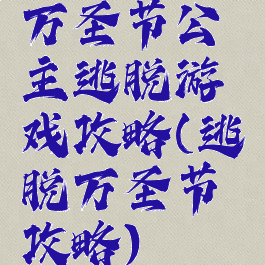 万圣节公
主逃脱游
戏攻略(逃
脱万圣节
攻略)